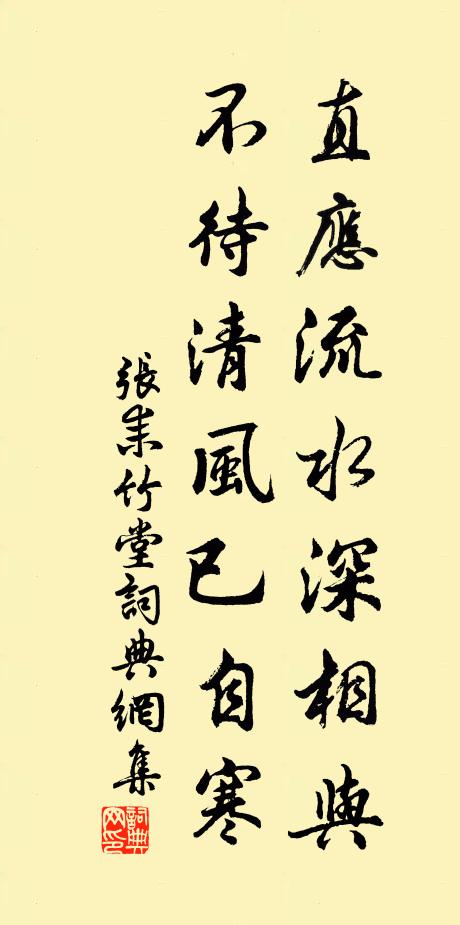 直應流水深相與
不待清風已自寒
張耒竹堂詞典網集
詞典網印